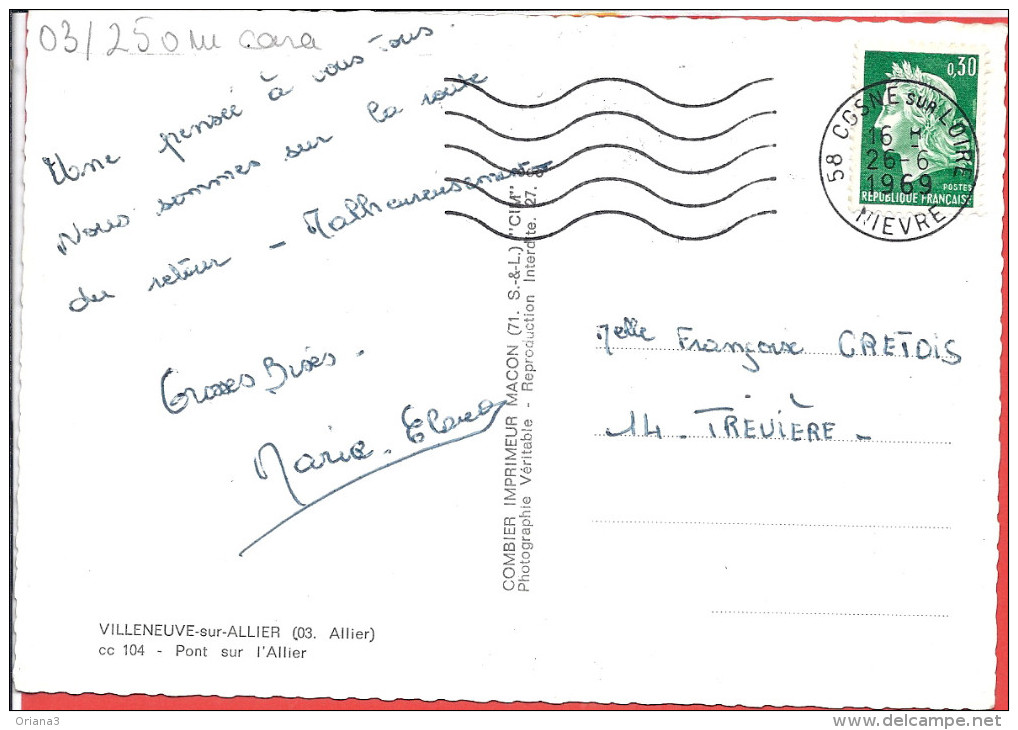 03/250 cara
Une pensée à vous tous.
Nous sommes sur la route
du retour - Malheureusement -
Grosses Bises.
Marie.
COMBIER IMPRIMEUR MACON (71. S.-&-L.) "CIM"
Photographie Véritable - Reproduction Interdite.
0,30
POSTES
REPUBLIQUE FRANÇAISE
58 COSNE SUR LOIRE
16 H
26-6
1969
NIEVRE
Melle Françoise GRETOIS
14 - TREVIÈRE -
VILLENEUVE-sur-ALLIER (03. Allier)
cc 104 - Pont sur l'Allier
Oriana3
www.delcampe.net